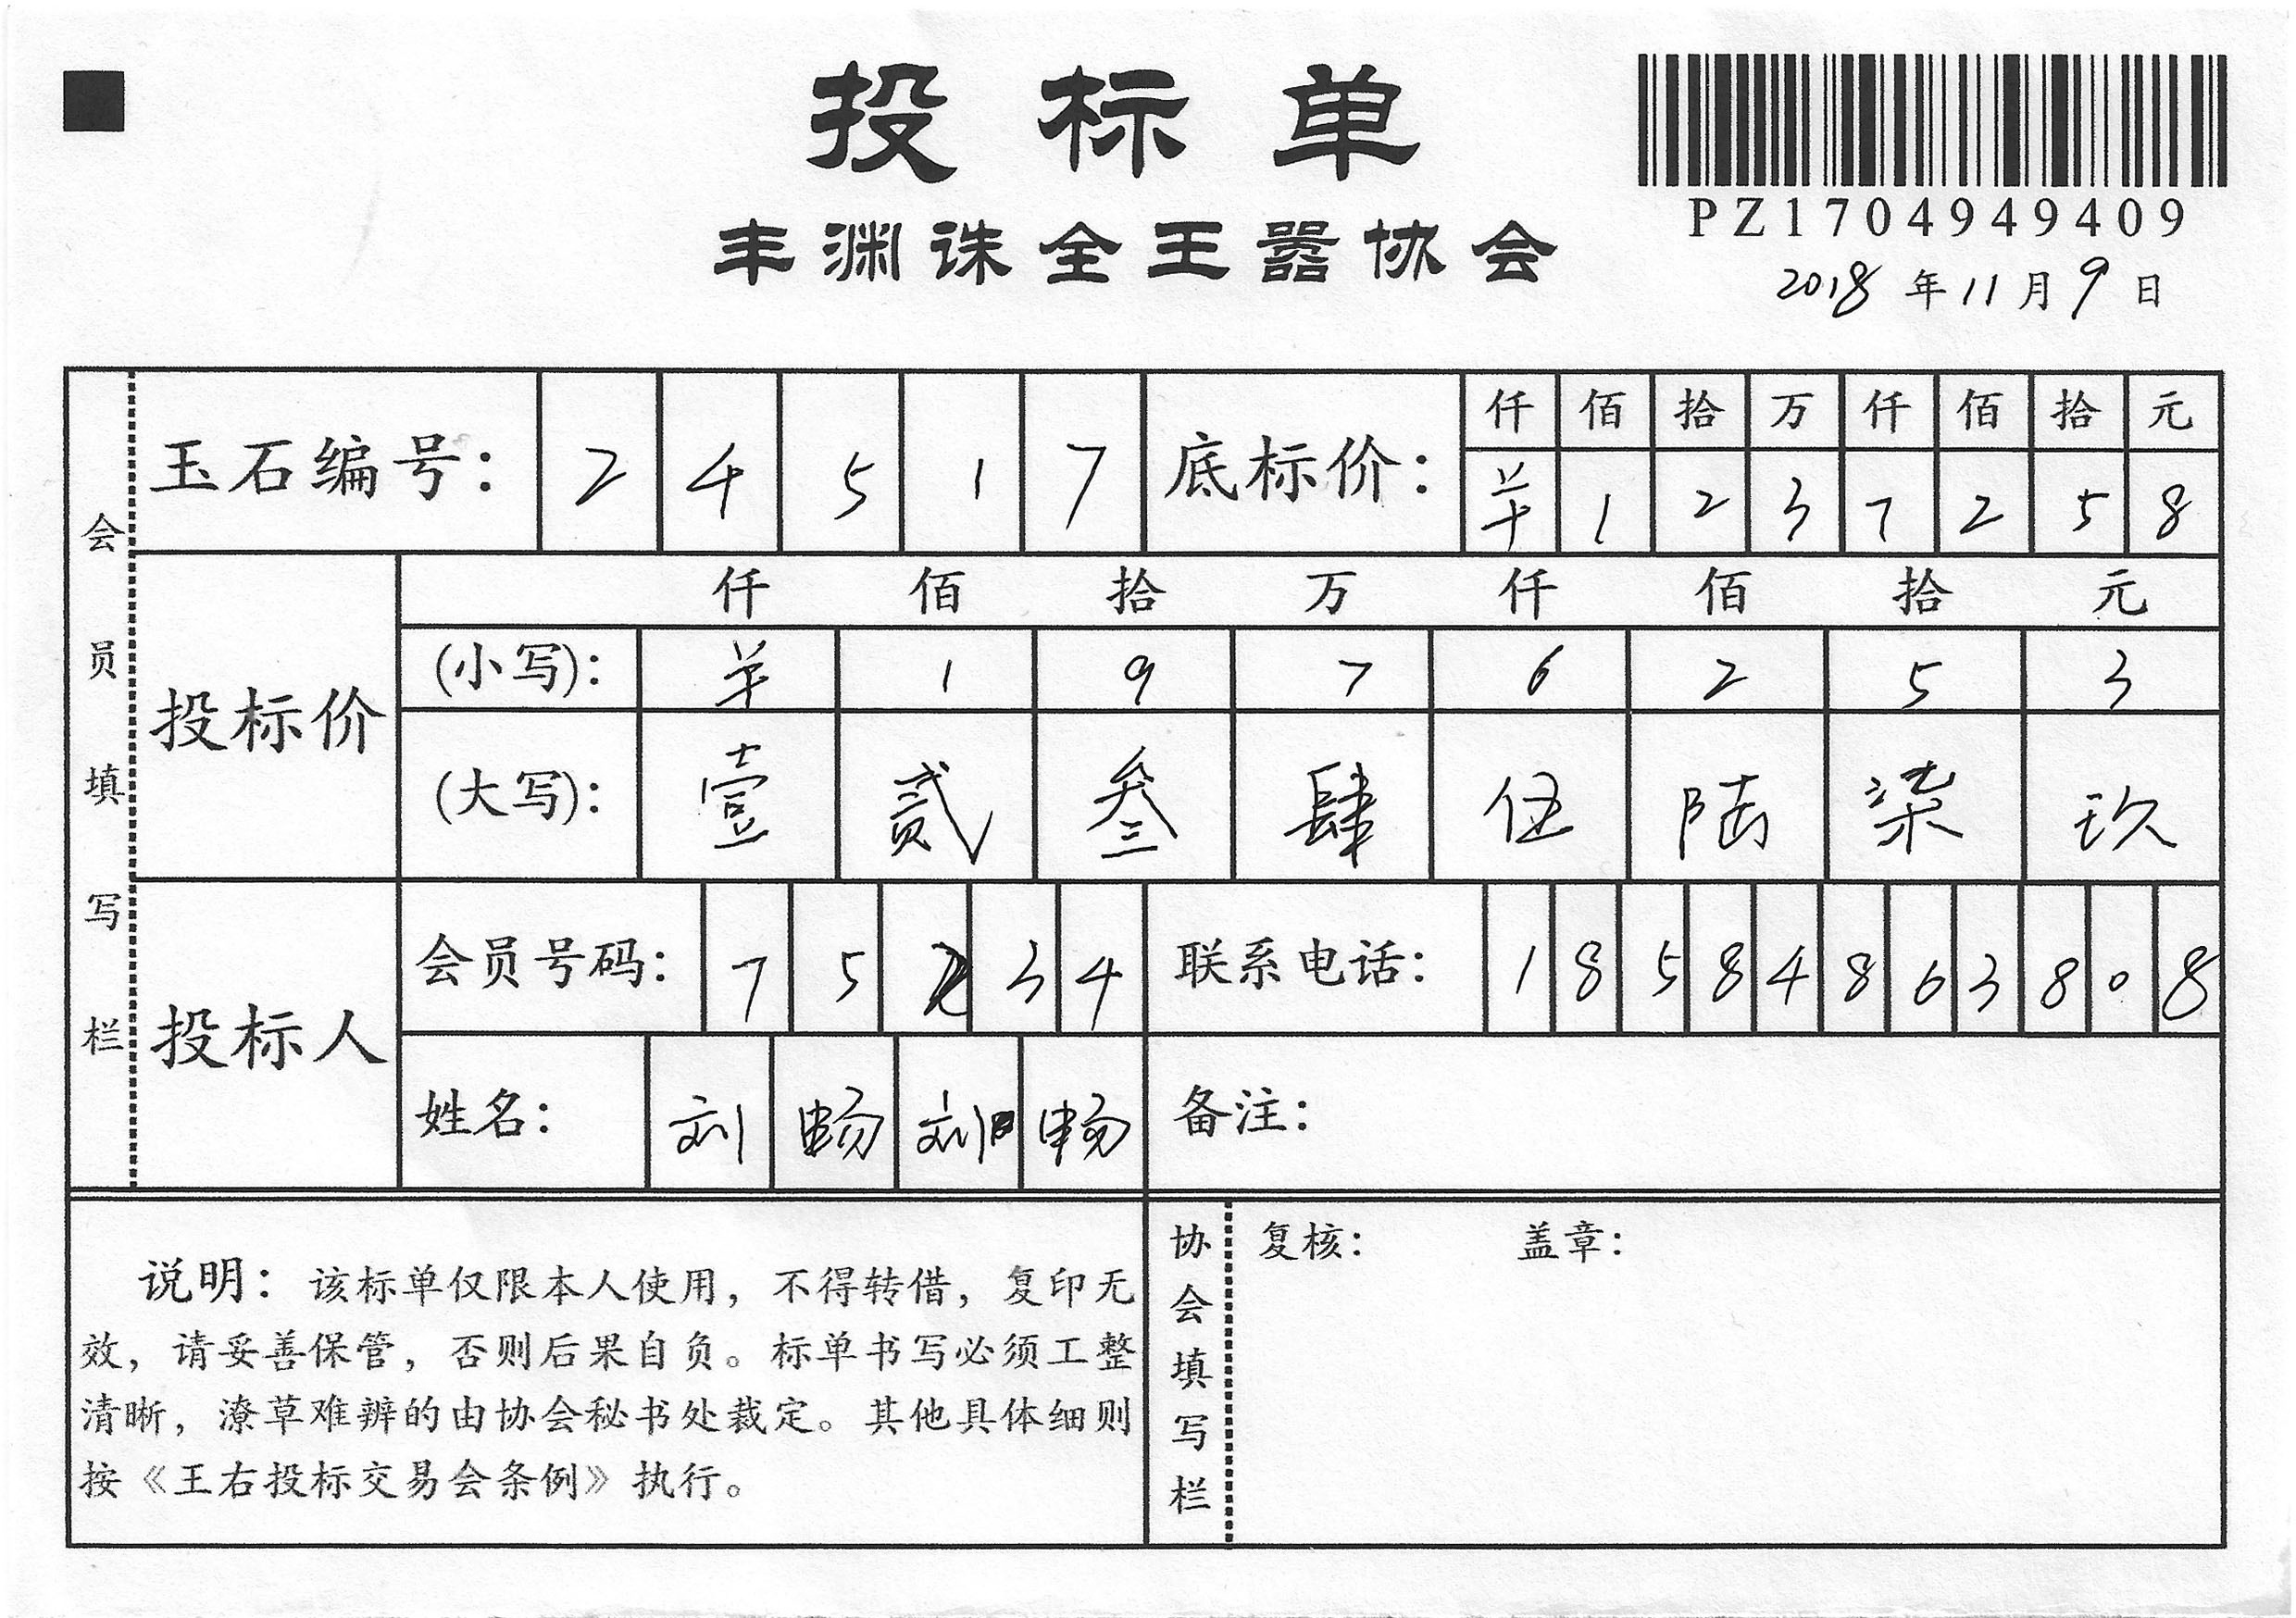 投标单
PZ1704949409
丰渊诛全王嚣协会
2018年11月9日
会员填写栏
玉石编号: 2 4 5 1 7
底标价: 仟 佰 拾 万 仟 佰 拾 元
1 2 3 7 2 5 8
投标价
仟 佰 拾 万 仟 佰 拾 元
(小写): 1 9 7 6 2 5 3
(大写): 壹 贰 叁 肆 伍 陆 柒 玖
投标人
会员号码: 7 5 2 3 4
联系电话: 1 8 5 8 4 8 6 3 8 0 8
姓名: 刘 畅 刘 畅
备注:
说明: 该标单仅限本人使用, 不得转借, 复印无
效, 请妥善保管, 否则后果自负。标单书写必须工整
清晰, 潦草难辨的由协会秘书处裁定。其他具体细则
按《王右投标交易会条例》执行。
协会填写栏
复核: 盖章: